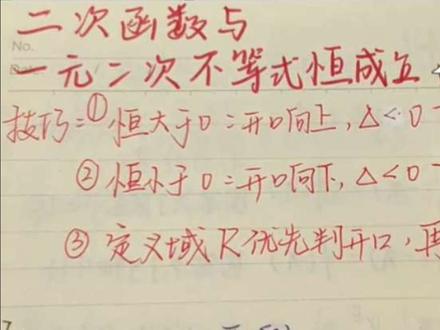 二次函数与
No.
一元二次不等式恒成立
技巧=①恒大于0=开口向上,△<0
②恒小于0=开口向下,△<0
③定义域R优先判开口,再